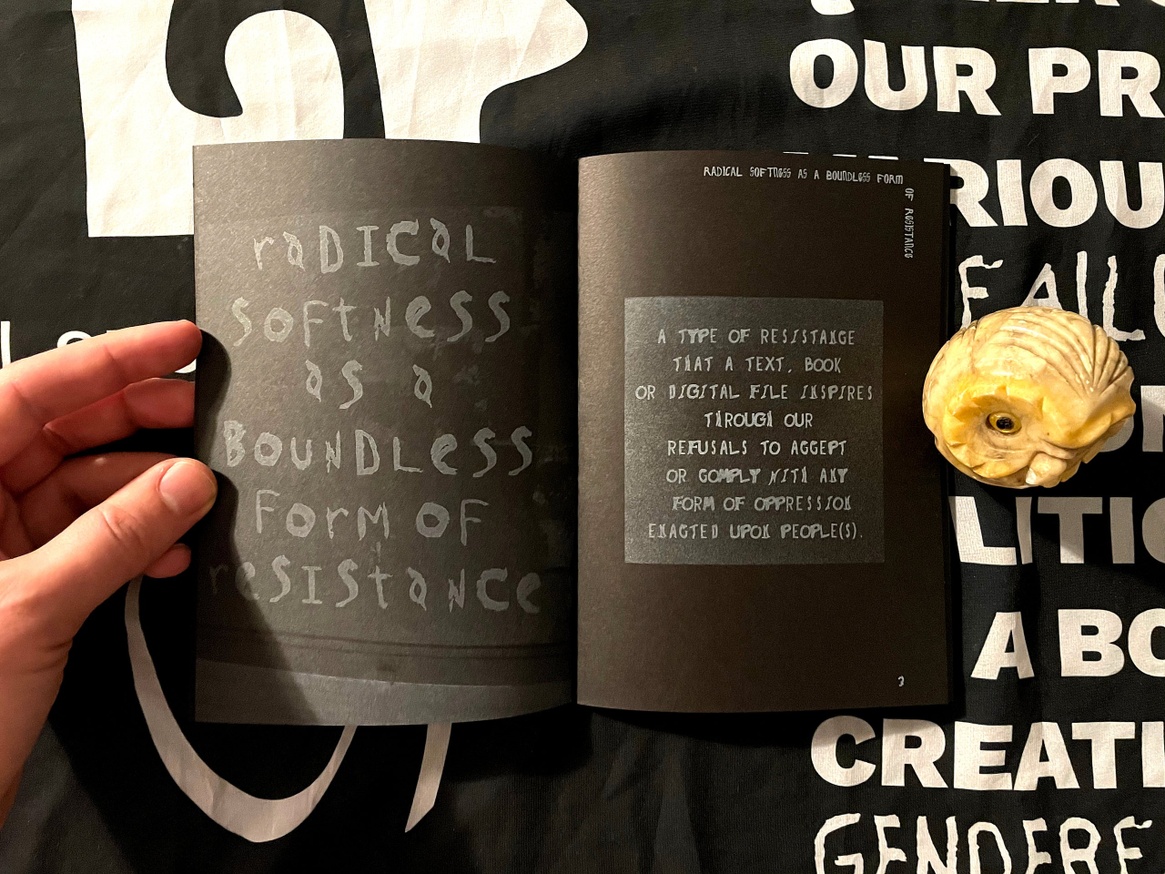 raDICaL
SOFtNeSS
aS a
BOUNDLeSS
FOrM OF
reSIStaNCe
RADICAL SOFTNESS AS A BOUNDLESS FORM
OF RESISTANCE
A TYPE OF RESISTANCE
THAT A TEXT, BOOK
OR DIGITAL FILE INSPIRES
THROUGH OUR
REFUSALS TO ACCEPT
OR COMPLY WITH ANY
FORM OF OPPRESSION
ENACTED UPON PEOPLE(S).
3
OUR PR
RIOU
FAILU
LITIC
A BO
CREATI
GENDERE